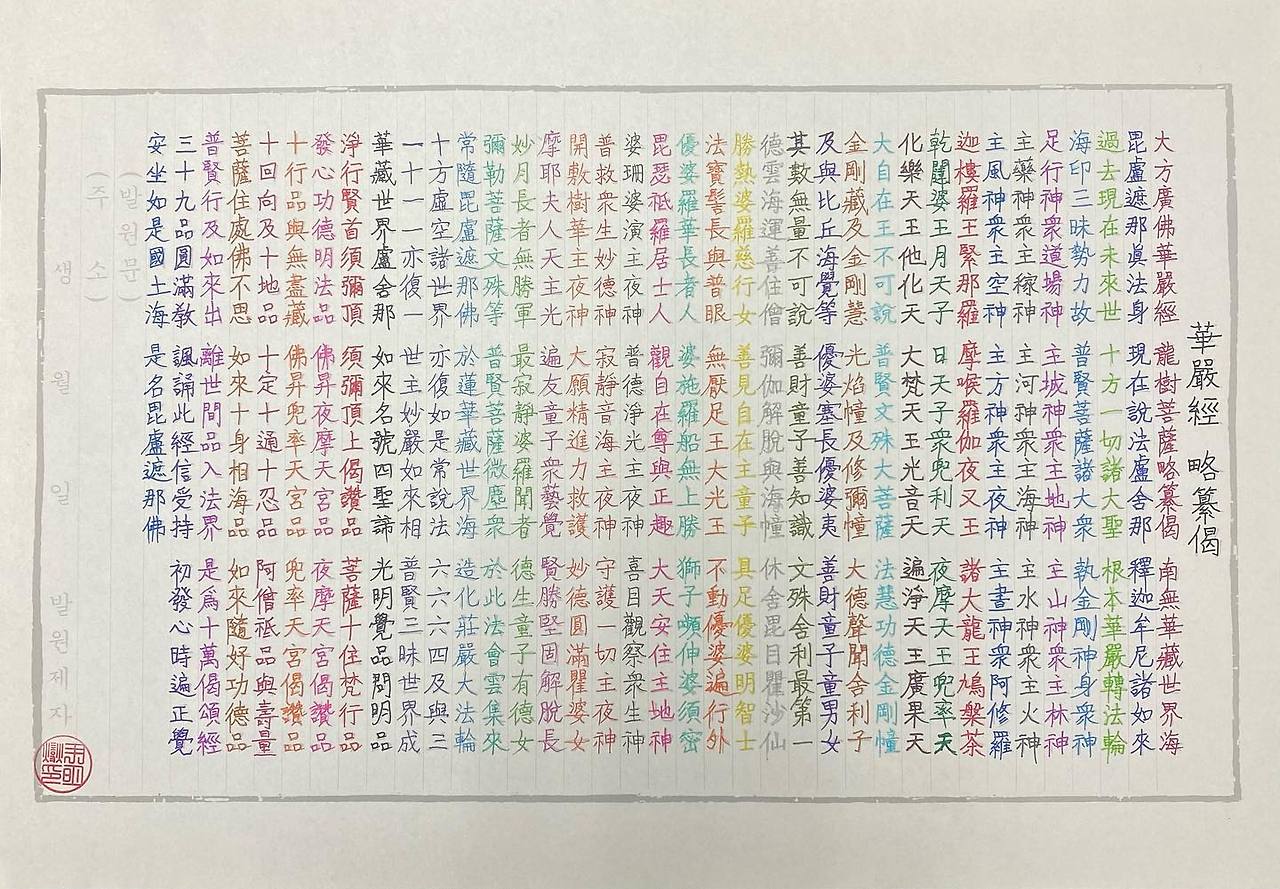 華嚴經 略纂偈
大方廣佛華嚴經 龍樹菩薩略纂偈 南無華藏世界海
毘盧遮那眞法身 現在說法盧舍那 釋迦牟尼諸如來
過去現在未來世 十方一切諸大聖 根本華嚴轉法輪
海印三昧勢力故 普賢菩薩諸大衆 執金剛神身衆神
足行神衆道場神 主城神衆主地神 主山神衆主林神
主藥神衆主稼神 主河神衆主海神 主水神衆主火神
主風神衆主空神 主方神衆主夜神 主晝神衆阿修羅
迦樓羅王緊那羅 摩睺羅伽夜叉王 諸大龍王鳩槃茶
乾闥婆王月天子 日天子衆兜利天 夜摩天王兜率天
化樂天王他化天 大梵天王光音天 遍淨天王廣果天
大自在王不可說 普賢文殊大菩薩 法慧功德金剛幢
金剛藏及金剛慧 光焰幢及修彌幢 大德聲聞舍利子
及與比丘海覺等 優婆塞長優婆夷 善財童子童男女
其數無量不可說 善財童子善知識 文殊舍利最第一
德雲海運善住僧 彌伽解脫與海幢 休舍毘目瞿沙仙
勝熱婆羅慈行女 善見自在主童子 具足優婆明智士
法寶髻長與普眼 無厭足王大光王 不動優婆遍行外
優婆羅華長者人 婆施羅船無上勝 獅子嚬伸婆須密
毘瑟祇羅居士人 觀自在尊與正趣 大天安住主地神
婆珊婆演主夜神 普德淨光主夜神 喜目觀察衆生神
普救衆生妙德神 寂靜音海主夜神 守護一切主夜神
開敷樹華主夜神 大願精進力救護 妙德圓滿瞿婆女
摩耶夫人天主光 遍友童子衆藝覺 賢勝堅固解脫長
妙月長者無勝軍 最寂靜婆羅聞者 德生童子有德女
彌勒菩薩文殊等 普賢菩薩微塵衆 於此法會雲集來
常隨毘盧遮那佛 於蓮華藏世界海 造化莊嚴大法輪
十方虛空諸世界 亦復如是常說法 六六六四及與三
一十一一亦復一 世主妙嚴如來相 普賢三昧世界成
華藏世界盧舍那 如來名號四聖諦 光明覺品問明品
淨行賢首須彌頂 須彌頂上偈讚品 菩薩十住梵行品
發心功德明法品 佛昇夜摩天宮品 夜摩天宮偈讚品
十行品與無盡藏 佛昇兜率天宮品 兜率天宮偈讚品
十回向及十地品 十定十通十忍品 阿僧祇品與壽量
菩薩住處佛不思 如來十身相海品 如來隨好功德品
普賢行及如來出 離世間品入法界 是爲十萬偈頌經
三十九品圓滿教 諷誦此經信受持 初發心時遍正覺
安坐如是國土海 是名毘盧遮那佛
(발원문)
(주 소)
생 월 일 발원제자